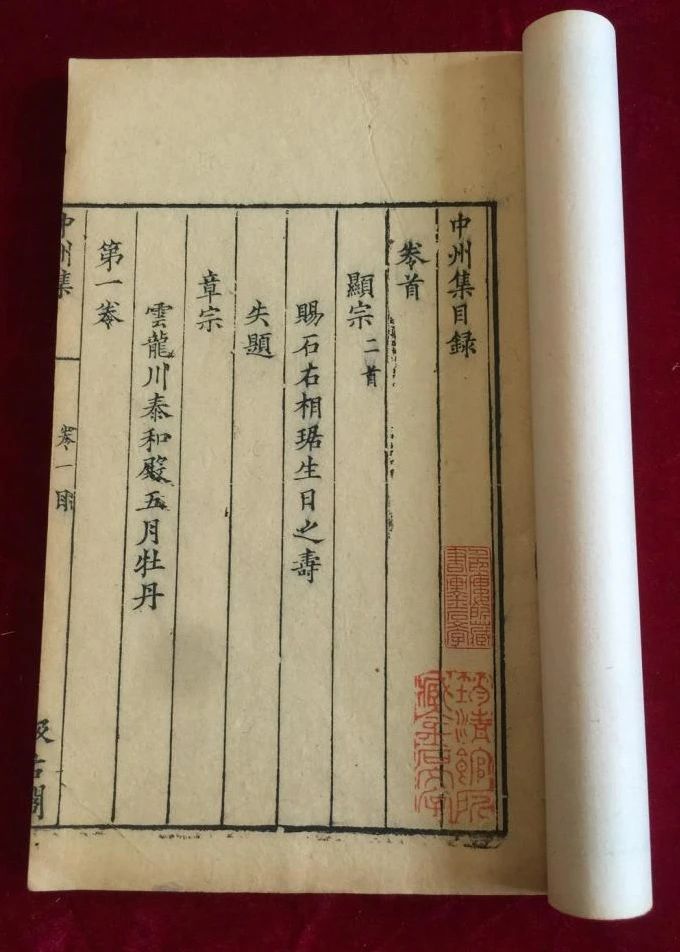 中州集目録
卷首
顯宗 二首
賜石右相琚生日之壽
失題
章宗
雲龍川泰和殿五月牡丹
第一卷
中州集
卷一目
汲古閣
筠清館所
藏金石文字